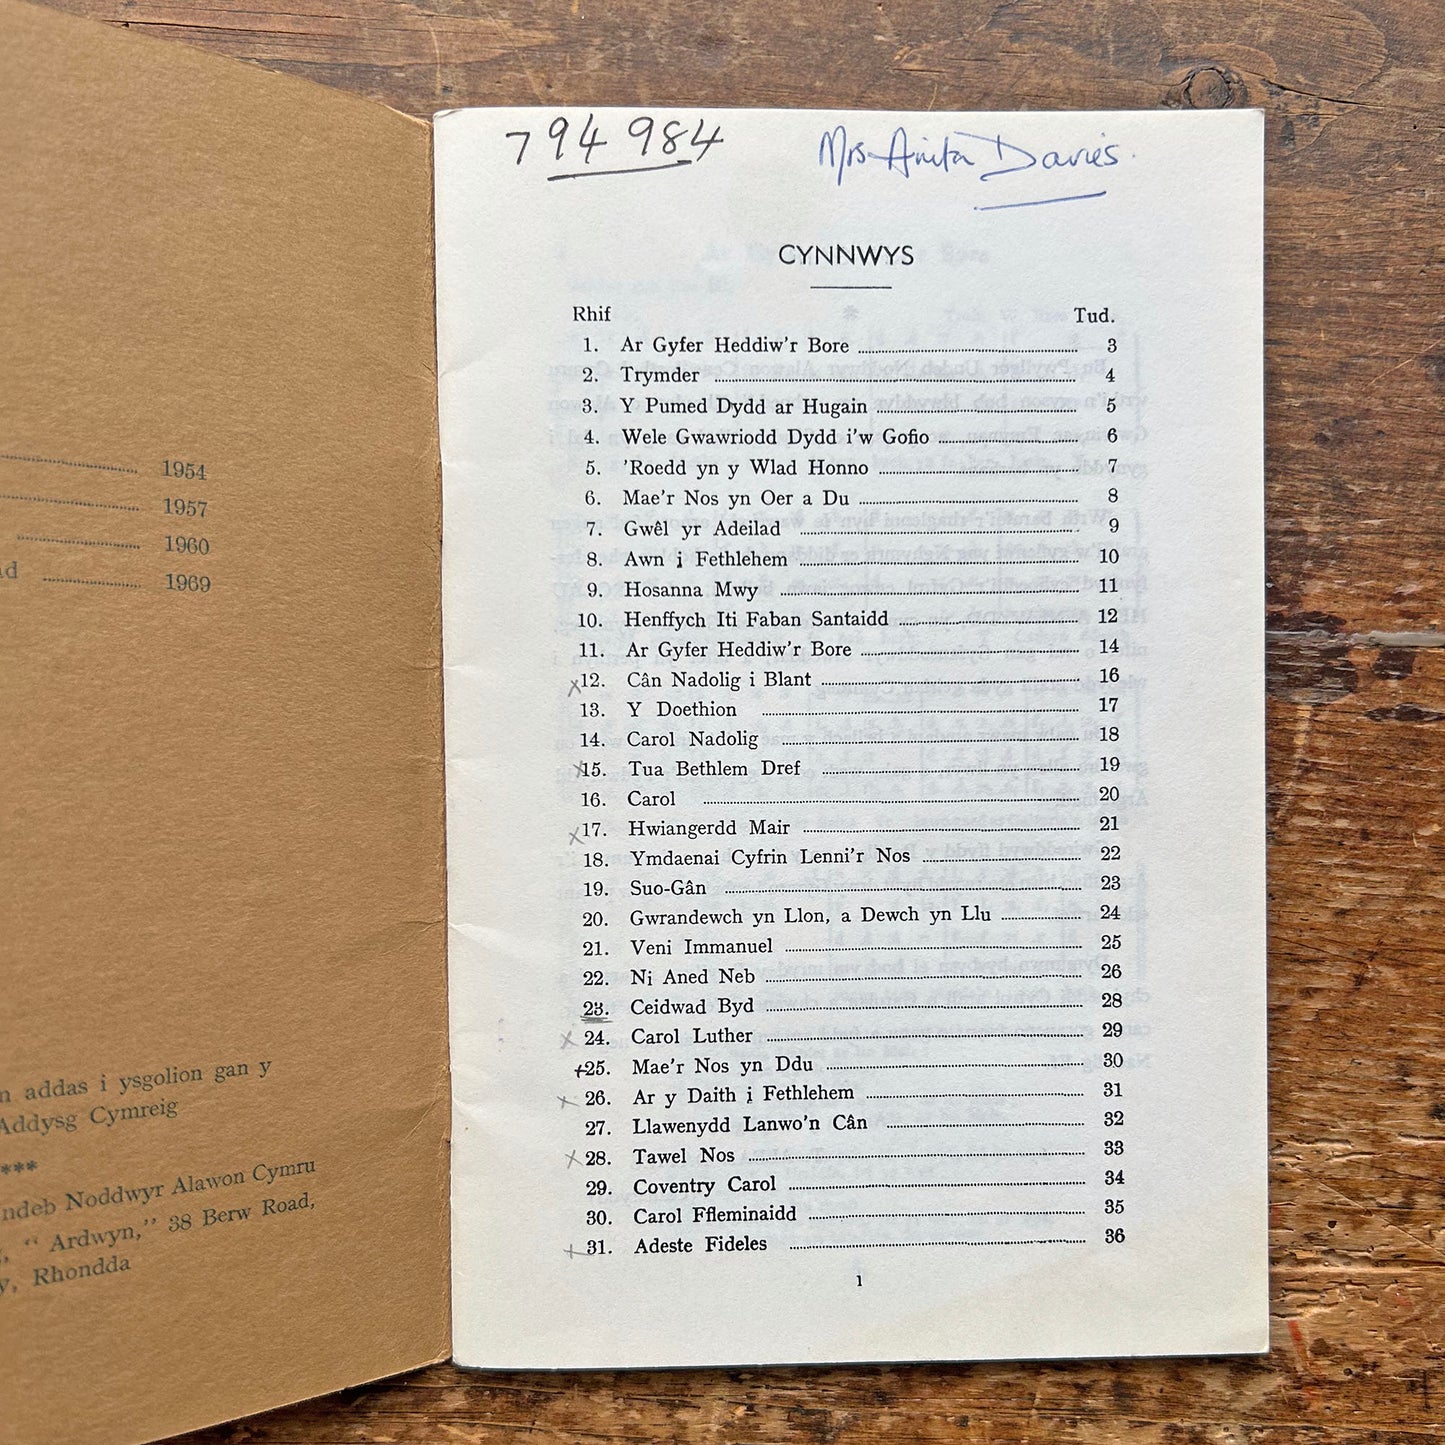 1954
1957
1960
1969
addas i ysgolion gan y
Addysg Cymreig
***
Noddwyr Alawon Cymru
“ Ardwyn,” 38 Berw Road,
Rhondda
794 984
Mrs Anita Davies.
CYNNWYS
Rhif Tud.
1. Ar Gyfer Heddiw'r Bore 3
2. Trymder 4
3. Y Pumed Dydd ar Hugain 5
4. Wele Gwawriodd Dydd i'w Gofio 6
5. 'Roedd yn y Wlad Honno 7
6. Mae'r Nos yn Oer a Du 8
7. Gwêl yr Adeilad 9
8. Awn i Fethlehem 10
9. Hosanna Mwy 11
10. Henffych Iti Faban Santaidd 12
11. Ar Gyfer Heddiw'r Bore 14
x 12. Cân Nadolig i Blant 16
13. Y Doethion 17
14. Carol Nadolig 18
x 15. Tua Bethlem Dref 19
16. Carol 20
x 17. Hwiangerdd Mair 21
18. Ymdaenai Cyfrin Lenni'r Nos 22
19. Suo-Gân 23
20. Gwrandewch yn Llon, a Dewch yn Llu 24
21. Veni Immanuel 25
22. Ni Aned Neb 26
23. Ceidwad Byd 28
x 24. Carol Luther 29
+ 25. Mae'r Nos yn Ddu 30
x 26. Ar y Daith i Fethlehem 31
27. Llawenydd Lanwo'n Cân 32
x 28. Tawel Nos 33
29. Coventry Carol 34
30. Carol Ffleminaidd 35
+ 31. Adeste Fideles 36
1